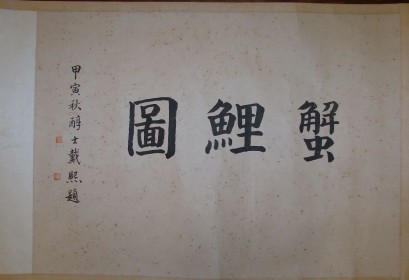 蟹鯉圖
甲寅秋醇士戴熙題